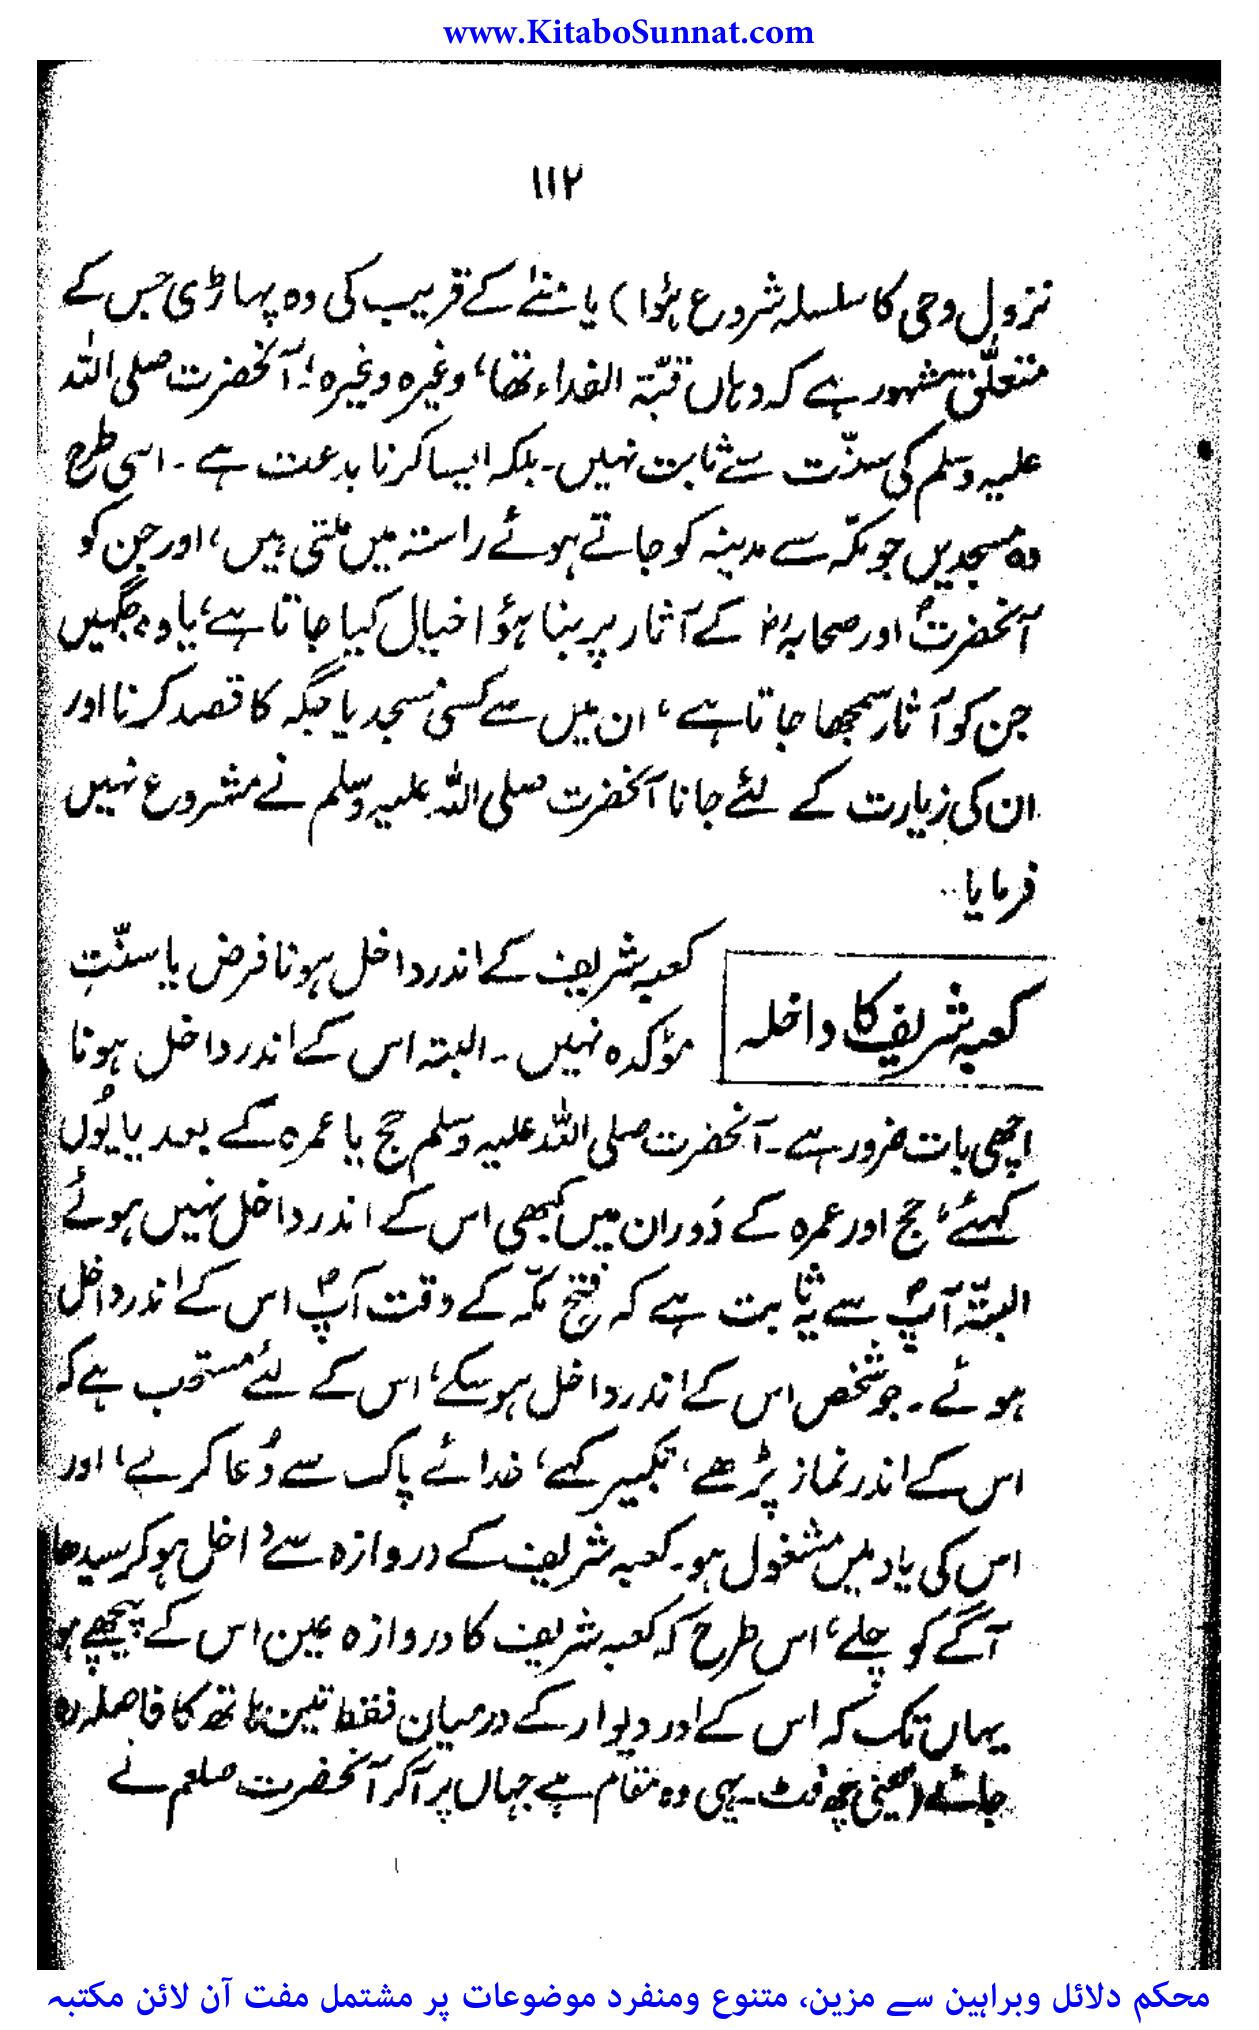 www.KitaboSunnat.com
۱۱۲
نزول وحی کا سلسلہ شروع ہؤا) یا منٰے کے قریب کی وہ پہاڑی جس کے
متعلّق مشہور ہے کہ وہاں قبّۃ الفداء تھا، وغیرہ وغیرہ؛ آنحضرت صلی اللہ
علیہ وسلم کی سنّت سے ثابت نہیں۔ بلکہ ایسا کرنا بدعت ہے۔ اسی طرح
وہ مسجدیں جو مکّہ سے مدینہ کو جاتے ہوئے راستہ میں ملتی ہیں، اور جن کو
آنحضرتؐ اور صحابہؓ کے آثار پر بنا ہؤا خیال کیا جاتا ہے، یا وہ جگہیں
جن کو آثار سمجھا جاتا ہے، ان میں سے کسی مسجد یا جگہ کا قصد کرنا اور
ان کی زیارت کے لئے جانا آنحضرت صلی اللہ علیہ وسلم نے مشروع نہیں
فرمایا۔
کعبہ شریف کا داخلہ
کعبہ شریف کے اندر داخل ہونا فرض یا سنّتِ
مؤکدہ نہیں۔ البتہ اس کے اندر داخل ہونا
اچھی بات ضرور ہے۔ آنحضرت صلی اللہ علیہ وسلم حج یا عمرہ کے بعد یا یُوں
کہئے، حج اور عمرہ کے دَوران میں کبھی اس کے اندر داخل نہیں ہوئے
البتّہ آپؐ سے یہ ثابت ہے کہ فتح مکّہ کے وقت آپؐ اس کے اندر داخل
ہوئے۔ جو شخص اس کے اندر داخل ہو سکے، اس کے لئے مستحب ہے کہ
اس کے اندر نماز پڑھے، تکبیر کہے، خدائے پاک سے دُعا کرے، اور
اس کی یاد میں مشغول ہو۔ کعبہ شریف کے دروازہ سے داخل ہو کر سیدھا
آگے کو چلے، اس طرح کہ کعبہ شریف کا دروازہ عین اس کے پیچھے ہو
یہاں تک کہ اس کے اور دیوار کے درمیان فقط تین ہاتھ کا فاصلہ رہ
جائے (یعنی چھ فٹ۔ یہی وہ مقام ہے جہاں پر آکر آنحضرت صلعم نے
محکم دلائل وبراہین سے مزین، متنوع ومنفرد موضوعات پر مشتمل مفت آن لائن مکتبہ